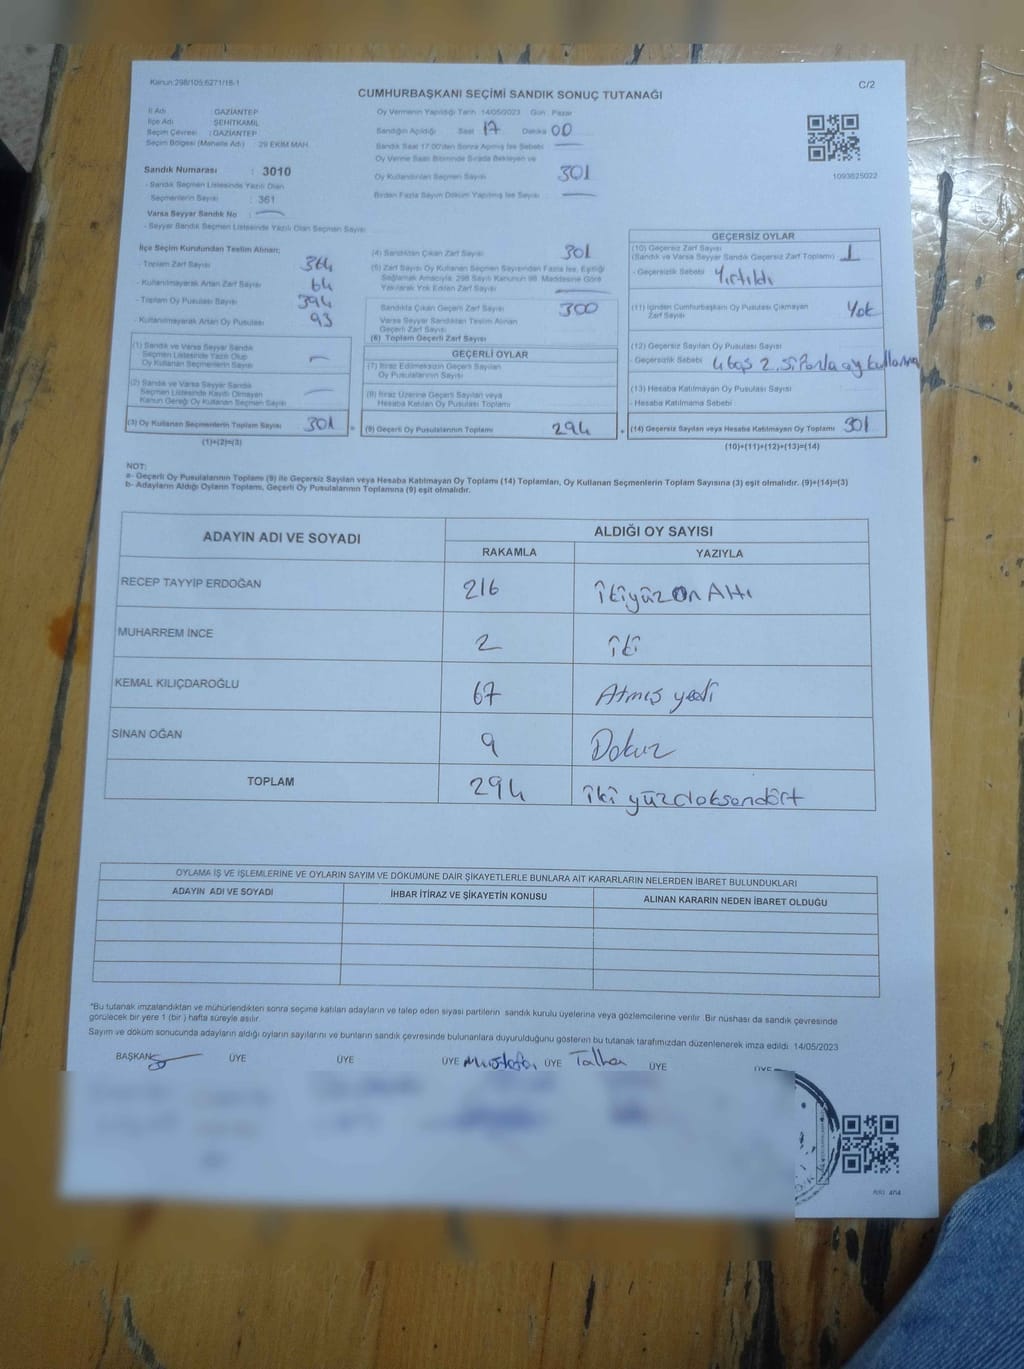 Kanun:298/105;6271/16/1
C/2
CUMHURBAŞKANI SEÇİMİ SANDIK SONUÇ TUTANAĞI
İl Adı : GAZİANTEP
İlçe Adı : ŞEHİTKAMİL
Seçim Çevresi : GAZİANTEP
Seçim Bölgesi (Mahalle Adı) 29 EKİM MAH.
Sandık Numarası : 3010
- Sandık Seçmen Listesinde Yazılı Olan
Seçmenlerin Sayısı : 361
Varsa Seyyar Sandık No :
- Seyyar Sandık Seçmen Listesinde Yazılı Olan Seçmen Sayısı
Oy Vermenin Yapıldığı Tarih :14/05/2023 Gün : Pazar
Sandığın Açıldığı Saat : 17 Dakika 00
Sandık Saat 17:00'den Sonra Açılmış İse Sebebi
Oy Verme Saati Bitiminde Sırada Bekleyen ve
Oy Kullandırılan Seçmen Sayısı 301
Birden Fazla Sayım Döküm Yapılmış İse Sayısı
1093825022
İlçe Seçim Kurulundan Teslim Alınan;
- Toplam Zarf Sayısı 364
- Kullanılmayarak Artan Zarf Sayısı 64
- Toplam Oy Pusulası Sayısı 394
- Kullanılmayarak Artan Oy Pusulası 93
(1) Sandık ve Varsa Seyyar Sandık
Seçmen Listesinde Yazılı Olup
Oy Kullanan Seçmenlerin Sayısı
(2) Sandık ve Varsa Seyyar Sandık
Seçmen Listesinde Kaydı Olmayan
Kanun Gereği Oy Kullanan Seçmen Sayısı
(3) Oy Kullanan Seçmenlerin Toplam Sayısı 301
(1)+(2)=(3)
(4) Sandıktan Çıkan Zarf Sayısı 301
(5) Zarf Sayısı Oy Kullanan Seçmen Sayısından Fazla İse, Eşitliği
Sağlamak Amacıyla, 298 Sayılı Kanunun 98. Maddesine Göre
Yakılarak Yok Edilen Zarf Sayısı
Sandıkta Çıkan Geçerli Zarf Sayısı 300
Varsa Seyyar Sandıktan Teslim Alınan
Geçerli Zarf Sayısı
(6) Toplam Geçerli Zarf Sayısı
GEÇERLİ OYLAR
(7) İtiraz Edilmeksizin Geçerli Sayılan
Oy Pusulalarının Sayısı
(8) İtiraz Üzerine Geçerli Sayılan veya
Hesaba Katılan Oy Pusulası Toplamı
(9) Geçerli Oy Pusulalarının Toplamı 294
GEÇERSİZ OYLAR
(10) Geçersiz Zarf Sayısı
(Sandık ve Varsa Seyyar Sandık Geçersiz Zarf Toplamı) 1
- Geçersizlik Sebebi Yırtıldı
(11) İçinden Cumhurbaşkanı Oy Pusulası Çıkmayan
Zarf Sayısı Yok
(12) Geçersiz Sayılan Oy Pusulası Sayısı
- Geçersizlik Sebebi 4 boş 2
(13) Hesaba Katılmayan Oy Pusulası Sayısı
- Hesaba Katılmama Sebebi
(14) Geçersiz Sayılan veya Hesaba Katılmayan Oy Toplamı 301
(10)+(11)+(12)+(13)=(14)
NOT:
a- Geçerli Oy Pusulalarının Toplamı (9) ile Geçersiz Sayılan veya Hesaba Katılmayan Oy Toplamı (14) Toplamları, Oy Kullanan Seçmenlerin Toplam Sayısına (3) eşit olmalıdır. (9)+(14)=(3)
b- Adayların Aldığı Oyların Toplamı, Geçerli Oy Pusulalarının Toplamına (9) eşit olmalıdır.
ADAYIN ADI VE SOYADI
ALDIĞI OY SAYISI
RAKAMLA YAZIYLA
RECEP TAYYİP ERDOĞAN 216 İkiyüz On Altı
MUHARREM İNCE 2 iki
KEMAL KILIÇDAROĞLU 67 Atmış yedi
SİNAN OĞAN 9 Dokuz
TOPLAM 294 iki yüzdoksandört
OYLAMA İŞ VE İŞLEMLERİNE VE OYLARIN SAYIM VE DÖKÜMÜNE DAİR ŞİKAYETLERLE BUNLARA AİT KARARLARIN NELERDEN İBARET BULUNDUKLARI
ADAYIN ADI VE SOYADI İHBAR İTİRAZ VE ŞİKAYETİN KONUSU ALINAN KARARIN NEDEN İBARET OLDUĞU
"Bu tutanak imzalandıktan ve mühürlendikten sonra seçime katılan adayların ve talep eden siyasi partilerin sandık kurulu üyelerine veya gözlemcilerine verilir. Bir nüshası da sandık çevresinde
görülecek bir yere 1 (bir ) hafta süreyle asılır.
Sayım ve döküm sonucunda adayların aldığı oyların sayılarını ve bunların sandık çevresinde bulunanlara duyurulduğunu gösteren bu tutanak tarafımızdan düzenlenerek imza edildi. 14/05/2023
BAŞKAN ÜYE ÜYE ÜYE Mustafa ÜYE Talha ÜYE ÜYE